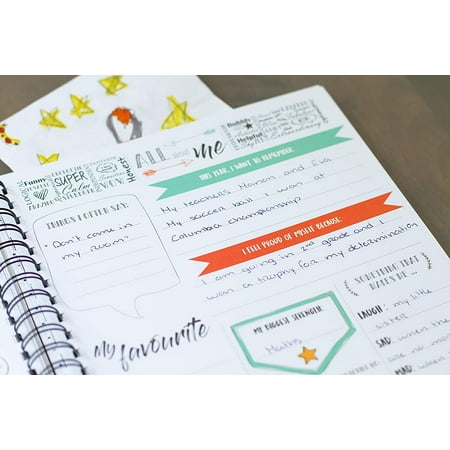 Funny
SUPER
Calm
Honest
WOW
ALL about me
Bubbly
Helpful
Extraordinary
THIS YEAR, I WANT TO REMEMBER:
My teachers Manon and Eva
My soccer ball I won at
Columbia championship
I FEEL PROUD OF MYSELF BECAUSE:
I am going in 2nd grade and I
won a trophy for my determination
THINGS I OFTEN SAY:
"Don't come in
my room"
My favourite
MY BIGGEST STRENGTH:
Maths
SOMETHING THAT
MAKES ME...
LAUGH: my little
sister
SAD: when the
are no more
MAD: when